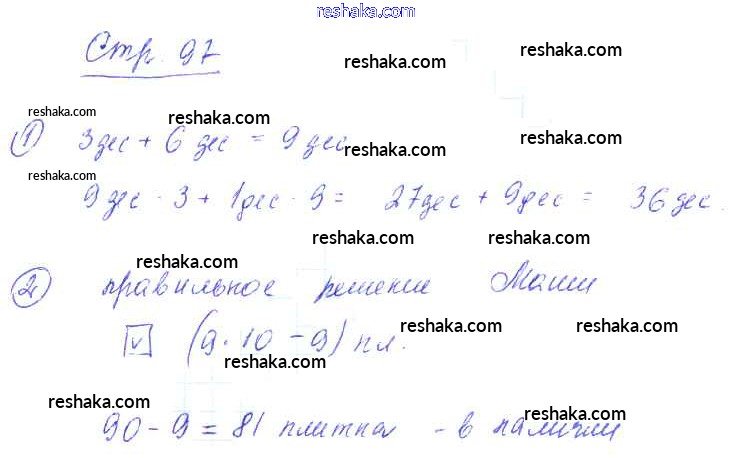 www.reshaka.com
Стр. 97
① 3 дес + 6 дес = 9 дес
9 дес · 3 + 1 дес · 9 = 27 дес + 9 дес = 36 дес.
② правильное решение Маши
☑ (9 · 10 − 9) пл.
90 − 9 = 81 плитка – в наличии
reshaka.com reshaka.com
reshaka.com reshaka.com reshaka.com
reshaka.com reshaka.com
reshaka.com reshaka.com
reshaka.com
reshaka.com reshaka.com
reshaka.com
reshaka.com reshaka.com